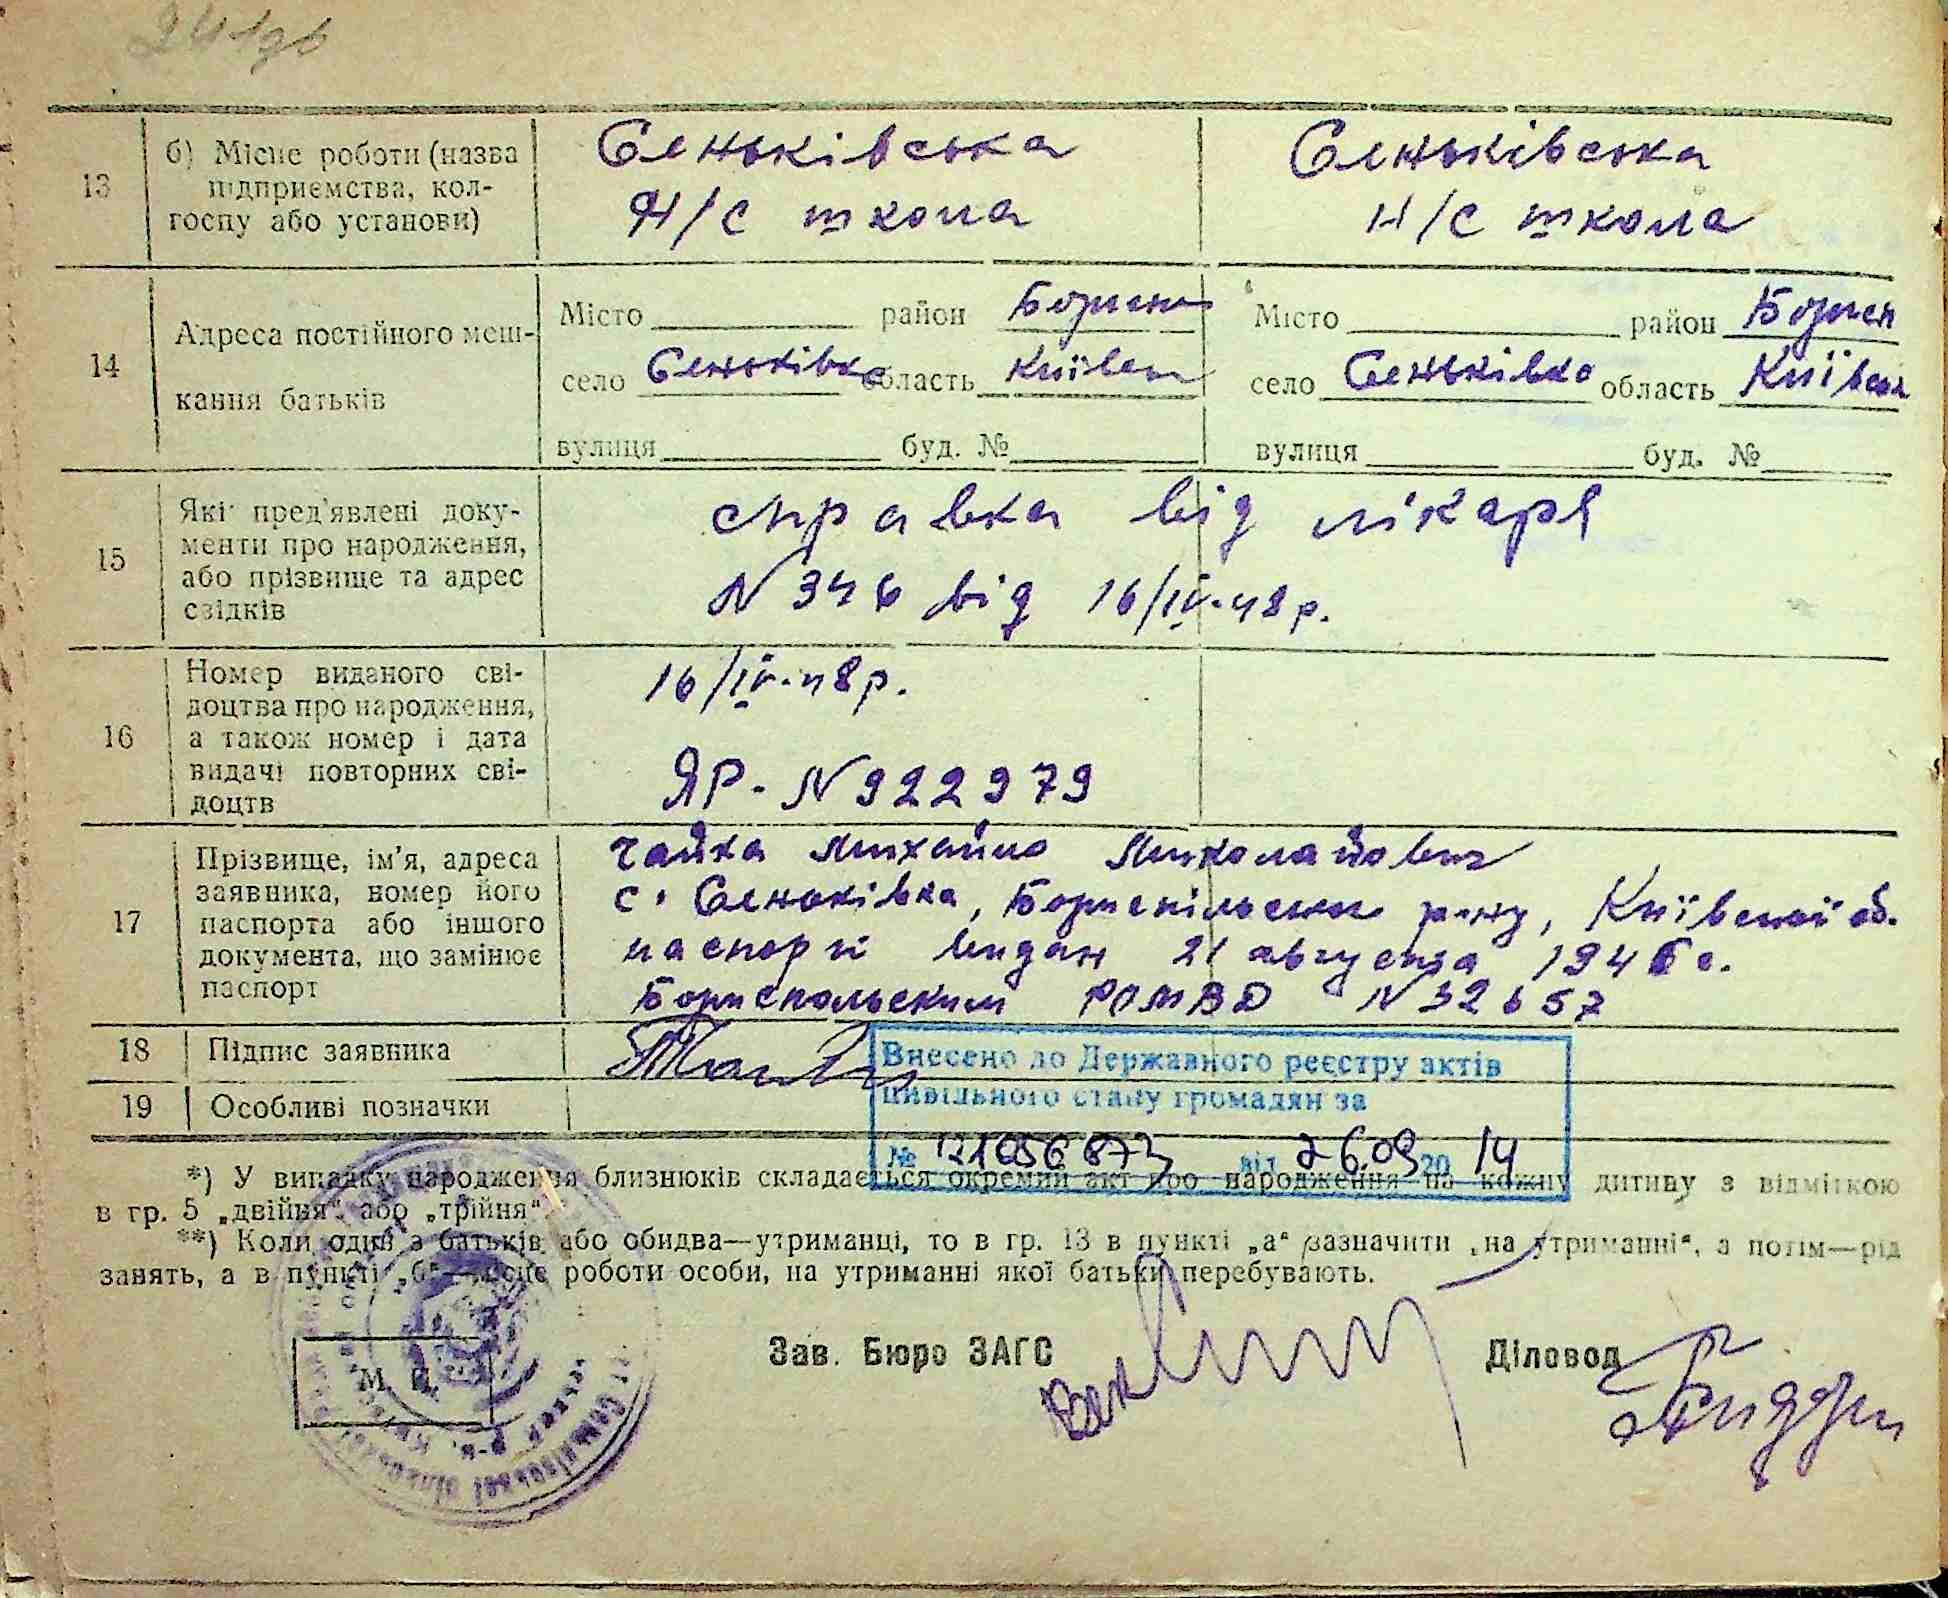 241 зв
13
б) Місце роботи (назва
підприємства, кол-
госпу або установи)
Сеньківська
Н/С школа
Сеньківська
Н/С школа
14
Адреса постійного меш-
кання батьків
Місто район Борисп
село Сеньківка область Київськ
вулиця буд. №
Місто район Борисп
село Сеньківка область Київськ
вулиця буд. №
15
Які пред'явлені доку-
менти про народження,
або прізвище та адрес
свідків
справка від лікаря
N 346 від 16/IV-48 р.
16
Номер виданого сві-
доцтва про народження,
а також номер і дата
видачі повторних сві-
доцтв
16/IV-48 р.
ЯР - N 922979
17
Прізвище, ім'я, адреса
заявника, номер його
паспорта або іншого
документа, що замінює
паспорт
Чайка Михайло Миколайович
с. Сеньківка, Бориспільськ р-ну, Київської об.
паспорт выдан 21 августа 1946 г.
Бориспольским РОМВД N 32657
18
Підпис заявника
19
Особливі позначки
Внесено до Державного реєстру актів
цивільного стану громадян за
№ від 26.09 20 14
*) У випадку народження близнюків складається окремий акт про народження на кожну дитину з відміткою
в гр. 5 „двійня“ або „трійня“.
**) Коли один з батьків або обидва—утриманці, то в гр. 13 в пункті „а“ зазначити „на утриманні“, а потім—рід
занять, а в пункті „б“ місце роботи особи, на утриманні якої батьки перебувають.
М. П.
Зав. Бюро ЗАГС
Діловод